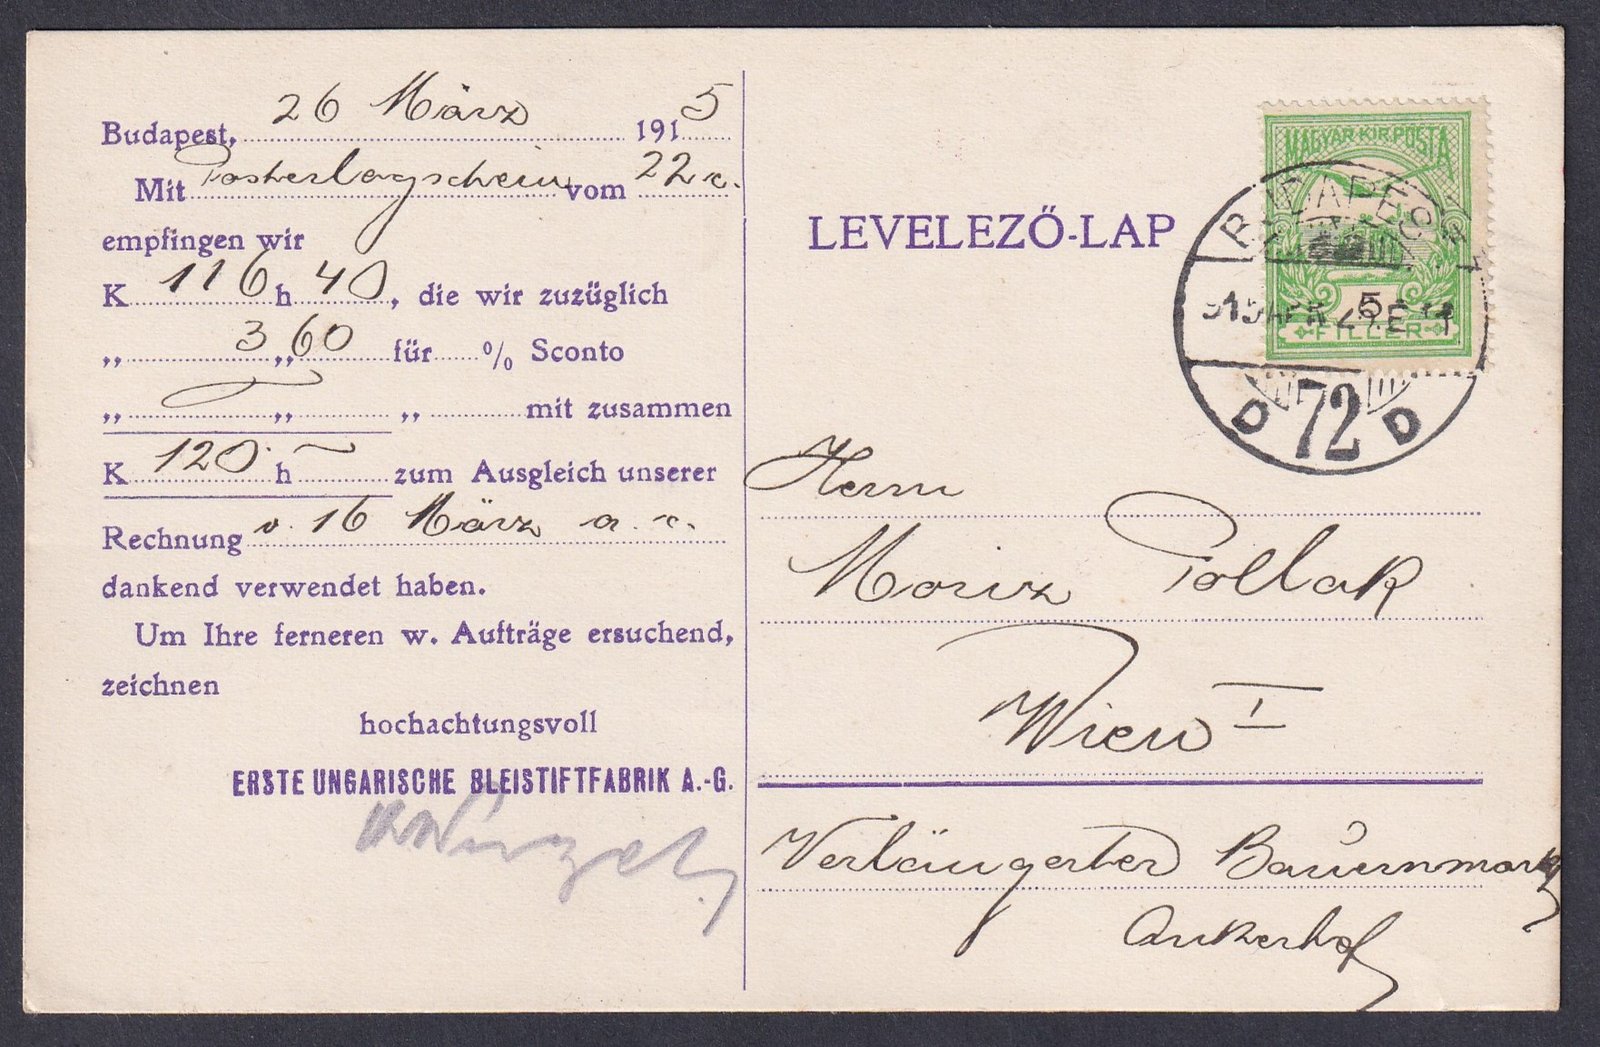 Budapest, 26 März 1915
Mit Posterlagschein vom 22 c.
empfingen wir
K 116 h 40, die wir zuzüglich
„ 3 „ 60 für % Sconto
„ „ „ mit zusammen
K 120 h — zum Ausgleich unserer
Rechnung v. 16 März a. c.
dankend verwendet haben.
Um Ihre ferneren w. Aufträge ersuchend,
zeichnen
hochachtungsvoll
ERSTE UNGARISCHE BLEISTIFTFABRIK A.-G.
LEVELEZŐ-LAP
MAGYAR KIR. POSTA
5
FILLER
BUDAPEST
D 72 D
Herrn
Moriz Pollak
Wien I
Verlängerter Bauernmarkt
Ankerhof